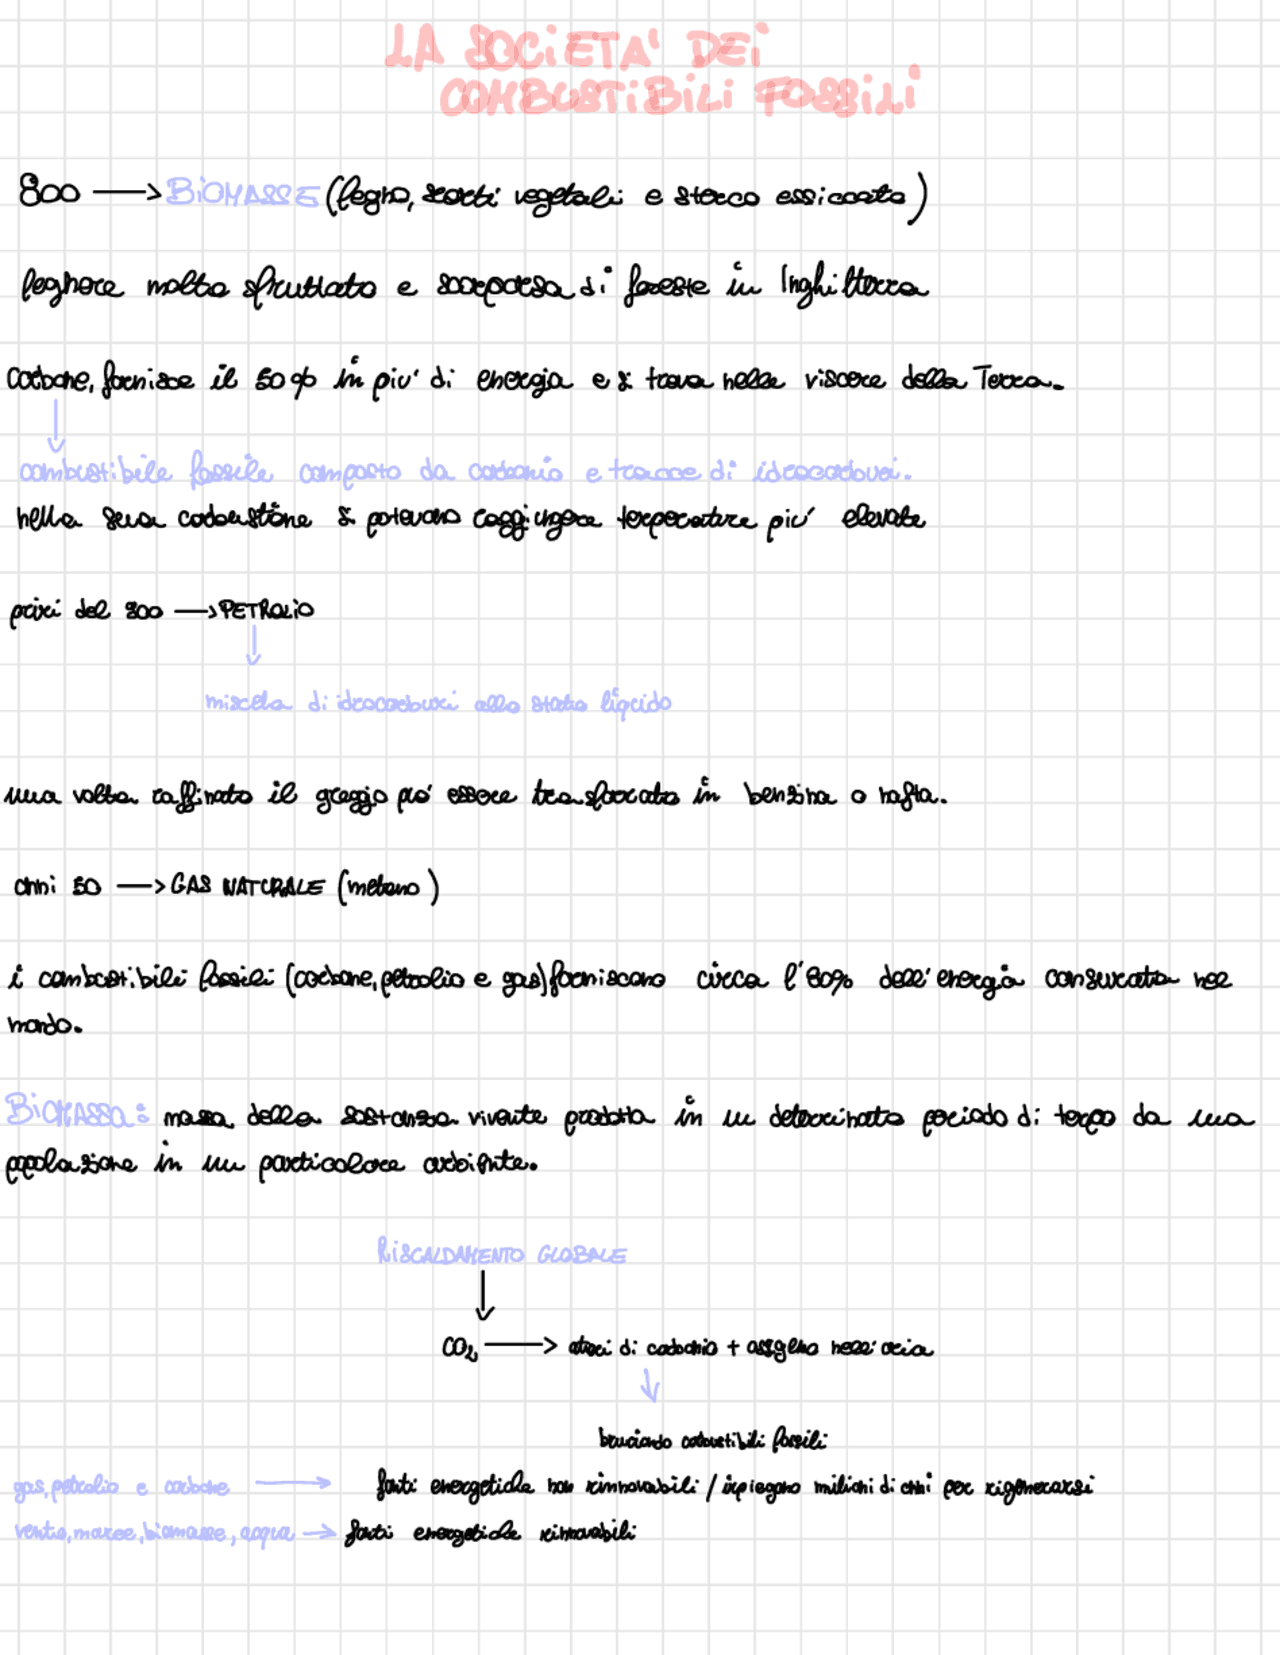 LA SOCIETA' DEI
COMBUSTIBILI FOSSILI
800 → BIOMASSE (legno, scarti vegetali e sterco essiccato)
legname molto sfruttato e scomparsa di foreste in Inghilterra
carbone, fornisce il 50% in piu' di energia e si trova nelle viscere della Terra.
↓
combustibile fossile composto da carbonio e tracce di idrocarburi.
nella sua combustione si potevano raggiungere temperature piu' elevate
primi del 800 → PETROLIO
↓
miscela di idrocarburi allo stato liquido
una volta raffinato il greggio può essere trasformato in benzina o nafta.
anni 50 → GAS NATURALE (metano)
i combustibili fossili (carbone, petrolio e gas) forniscono circa l'80% dell'energia consumata nel
mondo.
BIOMASSA: massa della sostanza vivente prodotta in un determinato periodo di tempo da una
popolazione in un particolare ambiente.
RISCALDAMENTO GLOBALE
↓
CO2 → atomi di carbonio + ossigeno nell'aria
↓
bruciando combustibili fossili
gas, petrolio e carbone → fonti energetiche non rinnovabili / impiegano milioni di anni per rigenerarsi
vento, maree, biomasse, acqua → fonti energetiche rinnovabili